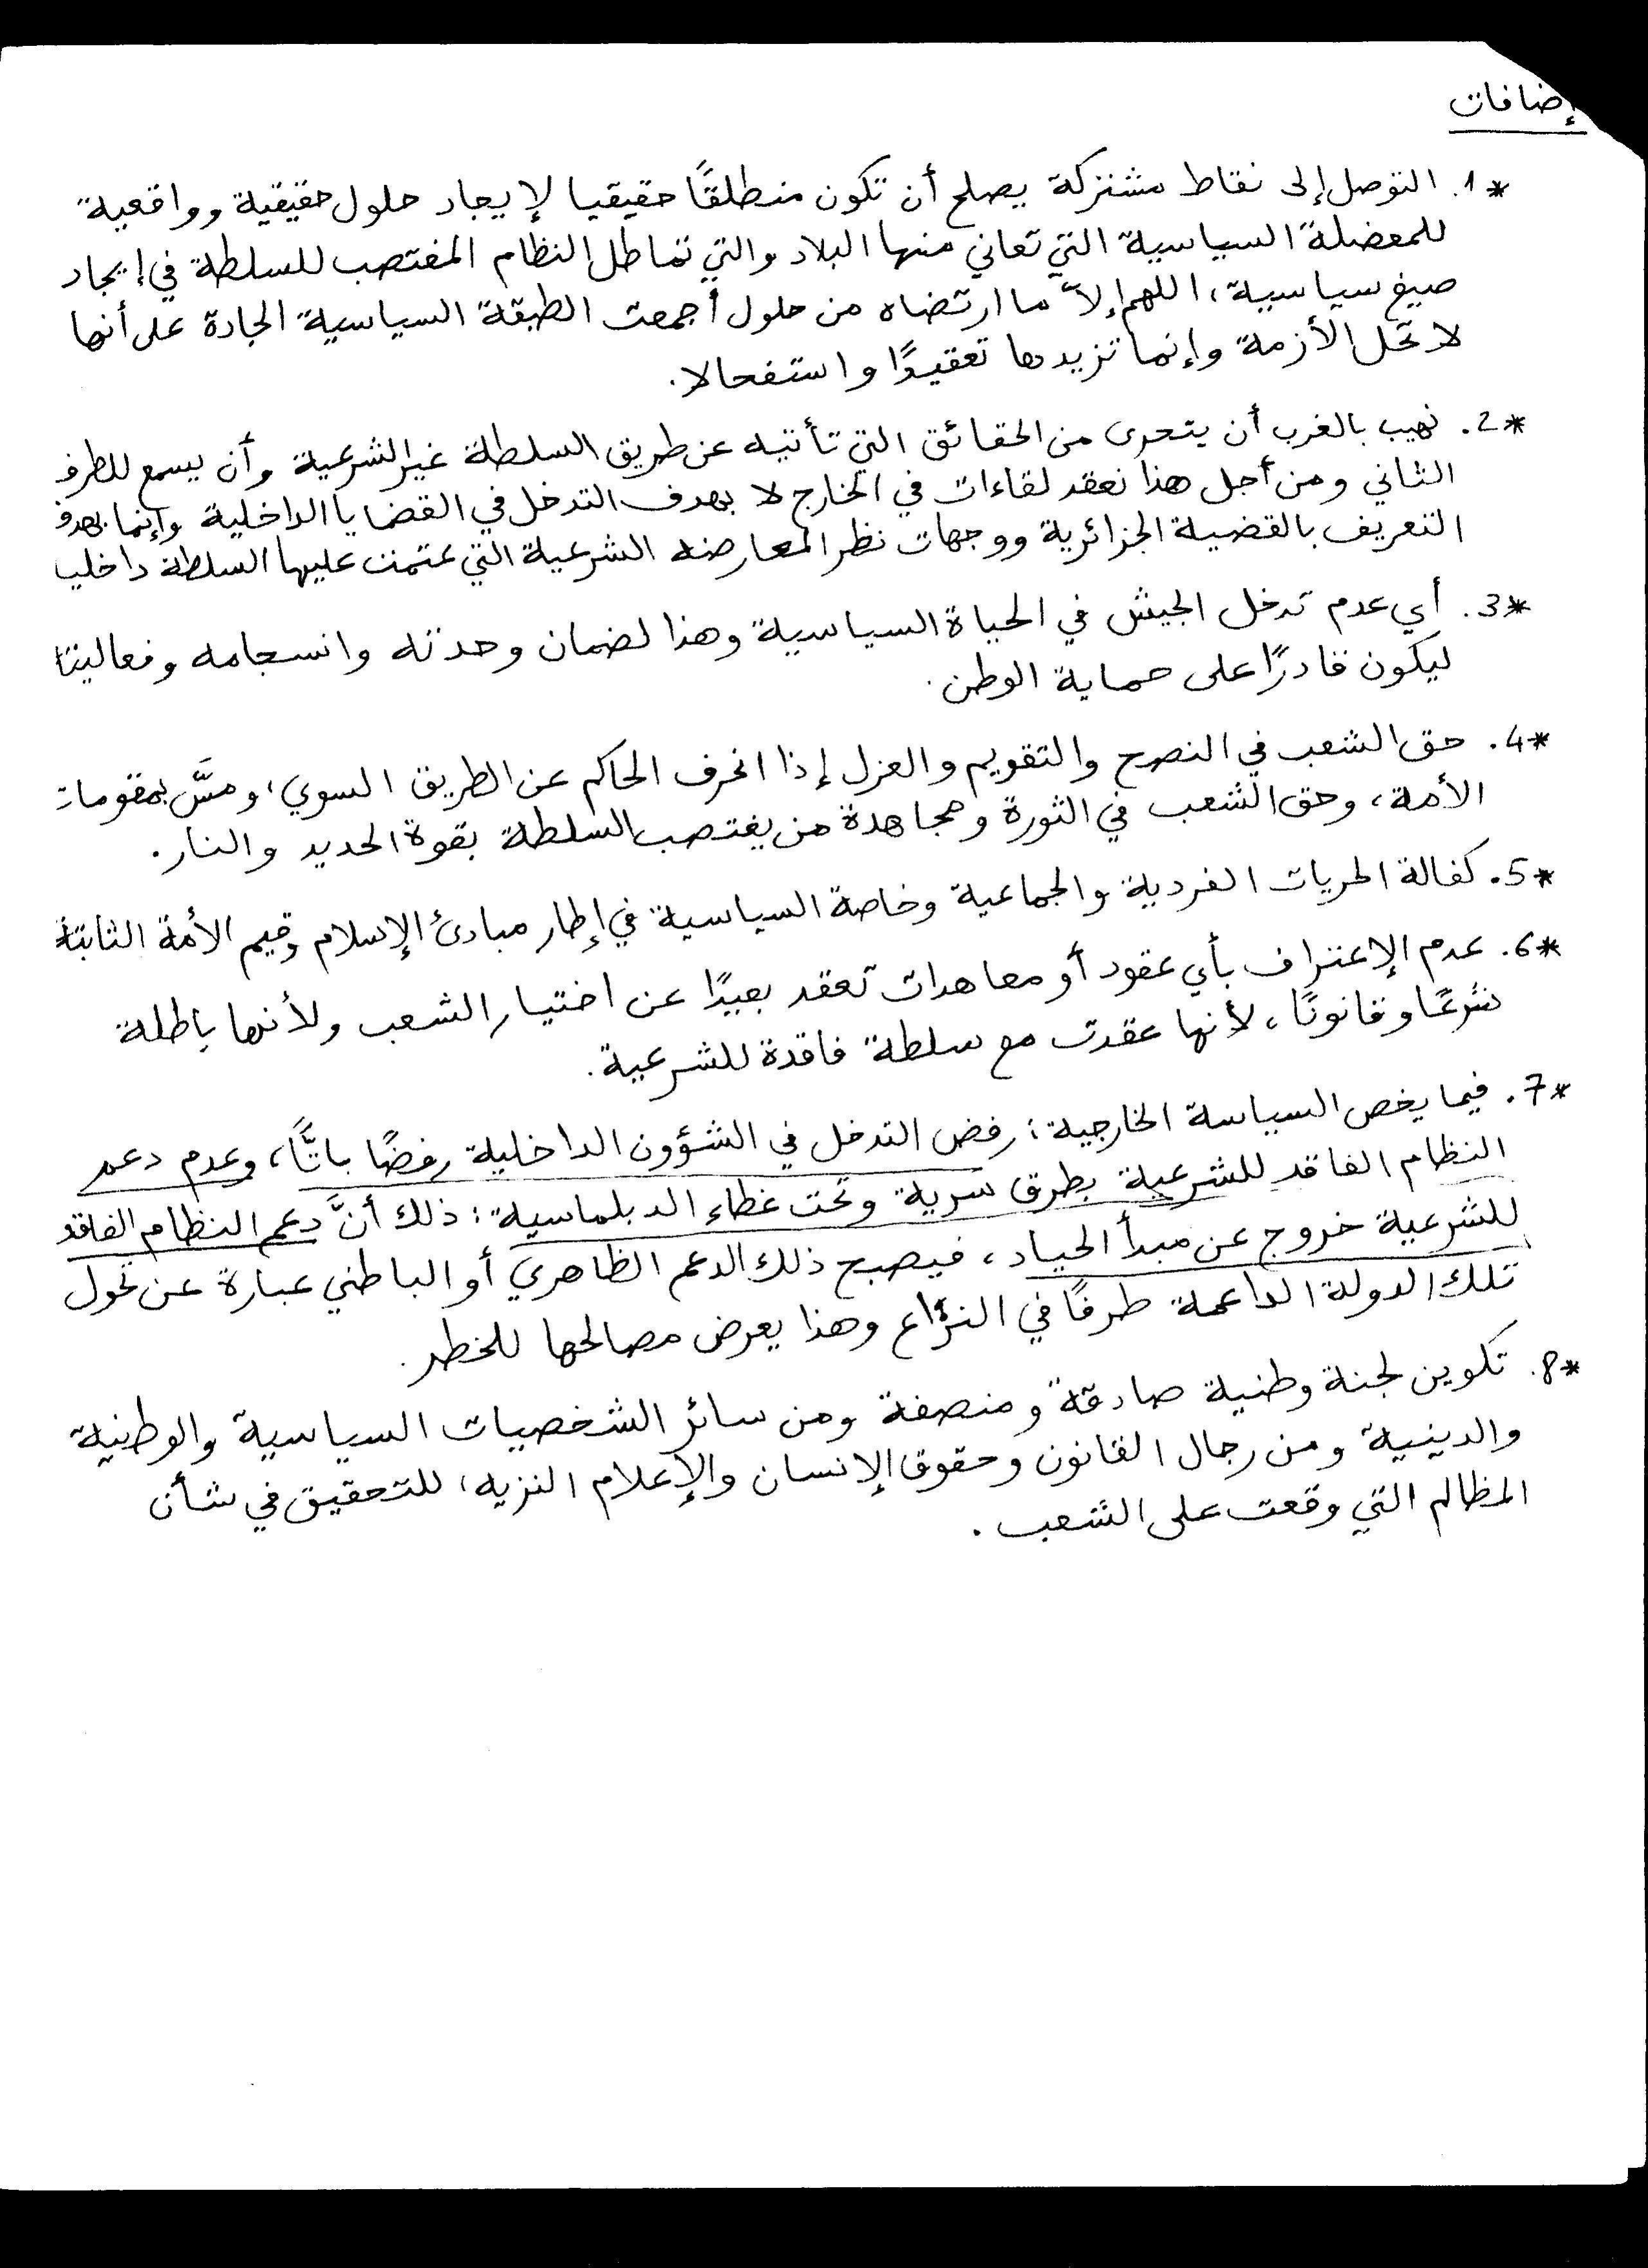 إضافات
*1. التوصل إلى نقاط مشتركة يصلح أن تكون منطلقًا حقيقيا لإيجاد حلول حقيقية وواقعية
للمعضلة السياسية التي تعاني منها البلاد والتي تماطل النظام المغتصب للسلطة في إيجاد
صيغ سياسية، اللهم إلاّ ما ارتضاه من حلول أجمعت الطبقة السياسية الجادة على أنها
لا تحل الأزمة وإنما تزيدها تعقيدًا واستفحالا.
*2. نهيب بالغرب أن يتحرى من الحقائق التي تأتيه عن طريق السلطة غير الشرعية وأن يسمع للطرف
الثاني ومن أجل هذا نعقد لقاءات في الخارج لا بهدف التدخل في القضايا الداخلية وإنما بهدف
التعريف بالقضية الجزائرية ووجهات نظر المعارضة الشرعية التي عتمت عليها السلطة داخليا
*3. أي عدم تدخل الجيش في الحياة السياسية وهذا لضمان وحدته وانسجامه وفعاليته
ليكون قادرًا على حماية الوطن.
*4. حق الشعب في النصح والتقويم والعزل إذا انحرف الحاكم عن الطريق السوي، ومسَّ بمقومات
الأمة، وحق الشعب في الثورة ومجاهدة من يغتصب السلطة بقوة الحديد والنار.
*5. كفالة الحريات الفردية والجماعية وخاصة السياسية في إطار مبادئ الإسلام وقيم الأمة الثابتة
*6. عدم الإعتراف بأي عقود أو معاهدات تعقد بعيدًا عن اختيار الشعب ولأنها باطلة
شرعًا وقانونًا، لأنها عقدت مع سلطة فاقدة للشرعية.
*7. فيما يخص السياسة الخارجية: رفض التدخل في الشؤون الداخلية رفضًا باتًّا، وعدم دعم
النظام الفاقد للشرعية بطرق سرية وتحت غطاء الدبلماسية: ذلك أنَّ دعم النظام الفاقد
للشرعية خروج عن مبدأ الحياد، فيصبح ذلك الدعم الظاهري أو الباطني عبارة عن تحول
تلك الدولة الداعمة طرفًا في النزاع وهذا يعرض مصالحها للخطر.
*8. تكوين لجنة وطنية صادقة ومنصفة ومن سائر الشخصيات السياسية والوطنية
والدينية ومن رجال القانون وحقوق الإنسان والإعلام النزيه، للتحقيق في شأن
المظالم التي وقعت على الشعب.